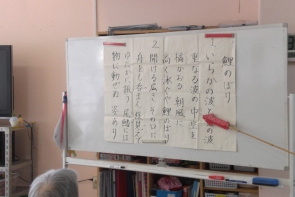 鯉のぼり
1.
いらかの波
の波
重なる波の中空を
橘かおる朝風に
高く泳ぐや鯉のぼり
2.
開ける広き其の口に
舟をも呑まん様見えて
ゆたかに振う尾鰭には
物に動ぜぬ姿あり